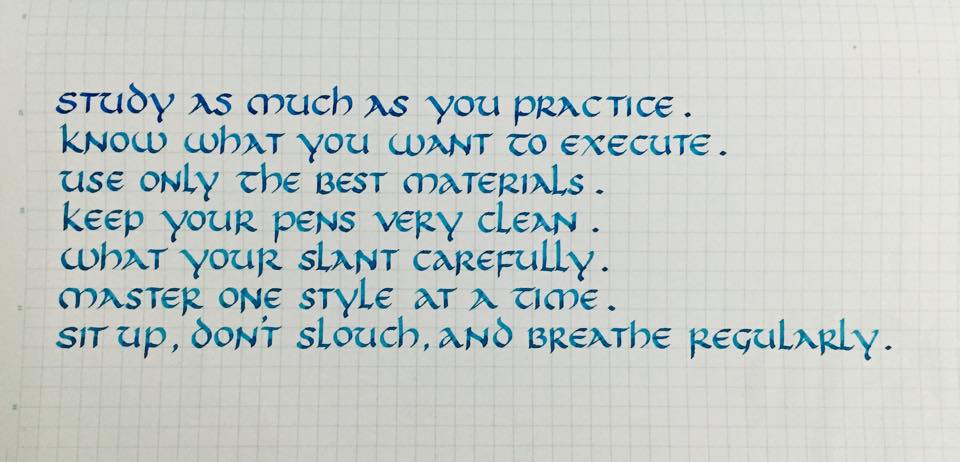 study as much as you practice.
know what you want to execute.
use only the best materials.
keep your pens very clean.
what your slant carefully.
master one style at a time.
sit up, don't slouch, and breathe regularly.